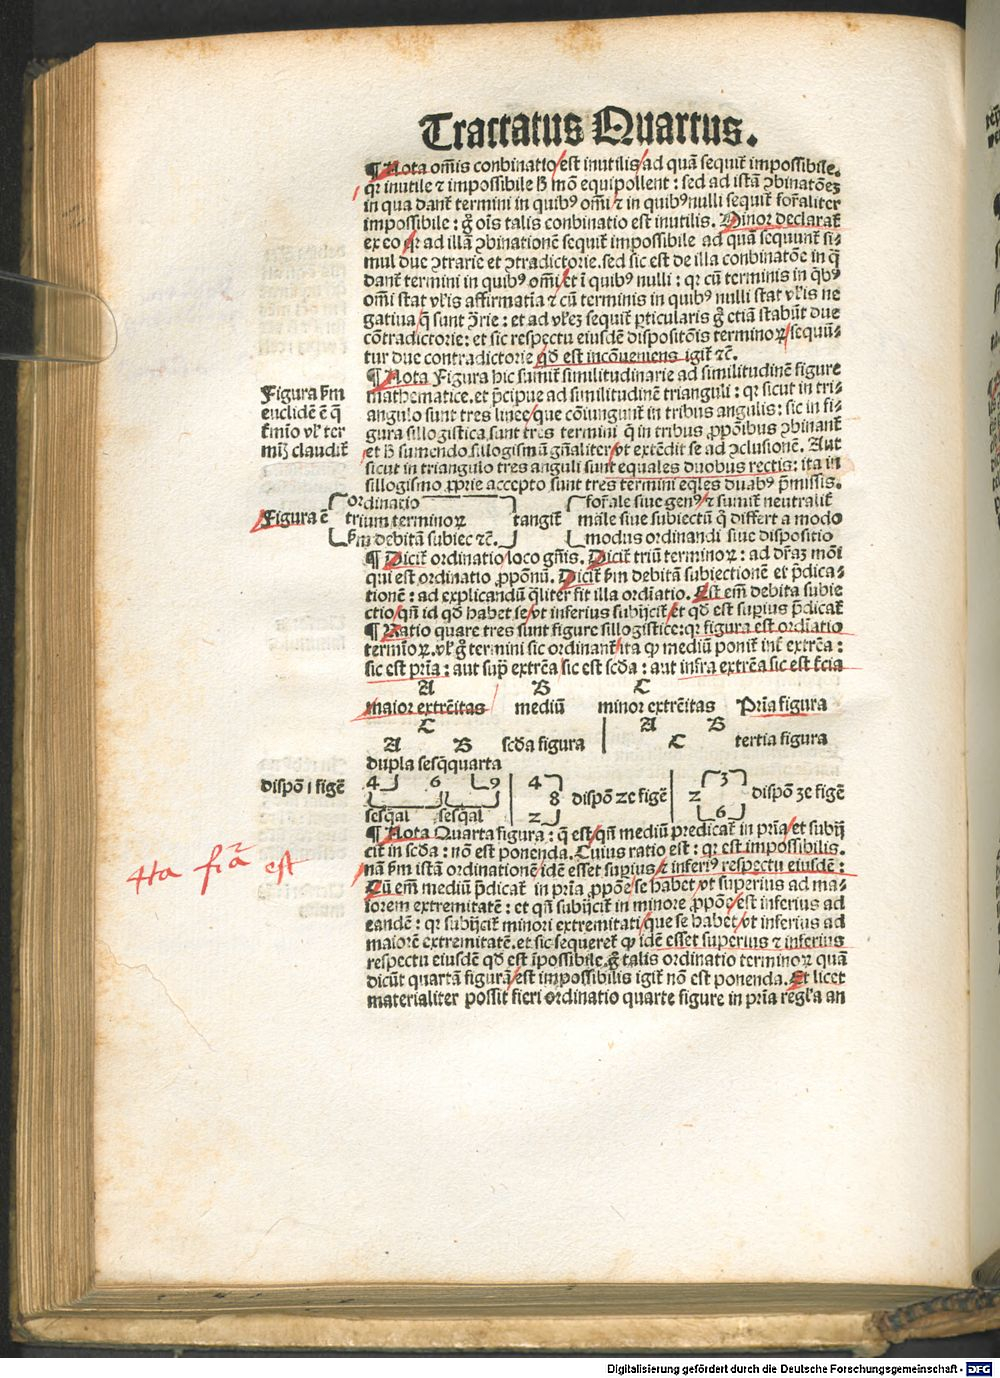 Tractatus Quartus.
¶ Nota om̄is conbinatio/est inutilis/ad quā sequit̄ impossibile.
qꝛ inutile ⁊ impossibile ẜm mō equipollent : sed ad istā ꝯbinatōeꝫ
in qua dant̄ termini in quibꝰ omī/⁊ in quibꝰ nulli sequit̄ for̄aliter
impossibile : g̊ oīs talis conbinatio est inutilis. Minor declarat̄
ex eo qꝛ ad illā ꝯbinationē sequit̄ impossibile ad quā sequunt̄ si⸗
mul due ꝯtrarie et ꝯtradictorie. sed sic est de illa conbinatōe in q̄
dant̄ termini in quibꝰ omī/et ī quibꝰ nulli : qꝛ cū terminis in q̇bꝰ
omī stat vl̄is affirmatīa ⁊ cū terminis in quibꝰ nulli stat vl̄is ne
gatiua/q̄ sunt ꝯ̄rie : et ad vl̄eꝫ sequit̄ ꝑticularis g̊ etiā stabūt due
cōtradictorie : et sic respectu eiusdē dispositōis terminoꝝ/sequū⸗
tur due contradictorie/qd̄ est incōueniens igit̄ ⁊c̄.
¶ Nota Figura hic sumit̄ similitudinarie ad similitudinē figure
mathematice. et p̄cipue ad similitudinē trianguli : qꝛ sicut in tri⸗
Figura ẜm
euclidē ē q̄
t̄mīo vl̓ ter
mīs claudit̄
angulo sunt tres linee/que cōiungunt̄ in tribus angulis : sic in fi⸗
gura sillogistica sunt tres termini q̄ in tribus ꝓpōnibus ꝯbinant̄
et ẜ sumendo sillogismū gn̄aliter/vt extēdit se ad ꝯclusionē. Aut
sicut in triangulo tres anguli sunt equales duobus rectis : ita in
sillogismo ꝓprie accepto sunt tres termini eq̄les duabꝰ p̄missis.
ordinatio for̄ale siue genꝰ/⁊ sumit̄ neutralit̄
Figura ē trium terminoꝝ tangit̄ māle siue subiectū q̄ differt a modo
ẜm debitā subiec ⁊c̄. modus ordinandi siue dispositio
¶ Dicit̄ ordinatio/loco gn̄is. Dicit̄ triū terminoꝝ : ad dr̄aꝫ mōi
qui est ordinatio ꝓpōnū. Dicit̄ ẜm debitā subiectionē et p̄dica⸗
tionē : ad explicandū q̄liter fit illa ordīatio. Est em̄ debita subie
ctio/qn̄ id qd̄ habet se/vt inferius subijcit̄/et qd̄ est supius p̄dicat̄
¶ Ratio quare tres sunt figure sillogistice : qꝛ figura est ordīatio
termīoꝝ. vl̓ g̊ termini sic ordinant̄/ita ꝙ mediū ponit̄ int̓ extrēa :
sic est pr̄ia : aut supra extrēa/sic est scd̄a : aut infra extrēa sic est t̄cia
A B C
maior extrēitas mediū minor extrēitas Pr̄ia figura
C A B
A B scd̄a figura C tertia figura
dupla sesq̄quarta
dispō 1 figē 4 6 9 4 8 dispō 2e figē 2 3 dispō 3e figē
sesq̄al sesq̄al 2 6
¶ Nota Quarta figura : q̄ est/qn̄ mediū predicat̄ in pr̄ia/et subij
cit̄ in scd̄a : nō est ponenda. Cuius ratio est : qꝛ est impossibilis.
nā ẜm istā ordinationē/idē esset supius/⁊ inferiꝰ respectu eiusdē :
4ta fi̅a est
Cū em̄ mediū p̄dicat̄ in pr̄ia ꝓpōe/se habet/vt superius ad ma⸗
iorem extremitatē : et qn̄ subijcit̄ in minore ꝓpōe/est inferius ad
eandē : qꝛ subijcit̄ minori extremitati/que se habet/vt inferius ad
maiorē extremitatē. et sic sequeret̄ ꝙ idē esset superius ⁊ inferius
respectu eiusdē qd̄ est īpossibile. g̊ talis ordinatio terminoꝝ quā
dicūt quartā figurā/est impossibilis igit̄ nō est ponenda. Et licet
materialiter possit fieri ordinatio quarte figure in pr̄ia regl̓a an
Digitalisierung gefördert durch die Deutsche Forschungsgemeinschaft - DFG